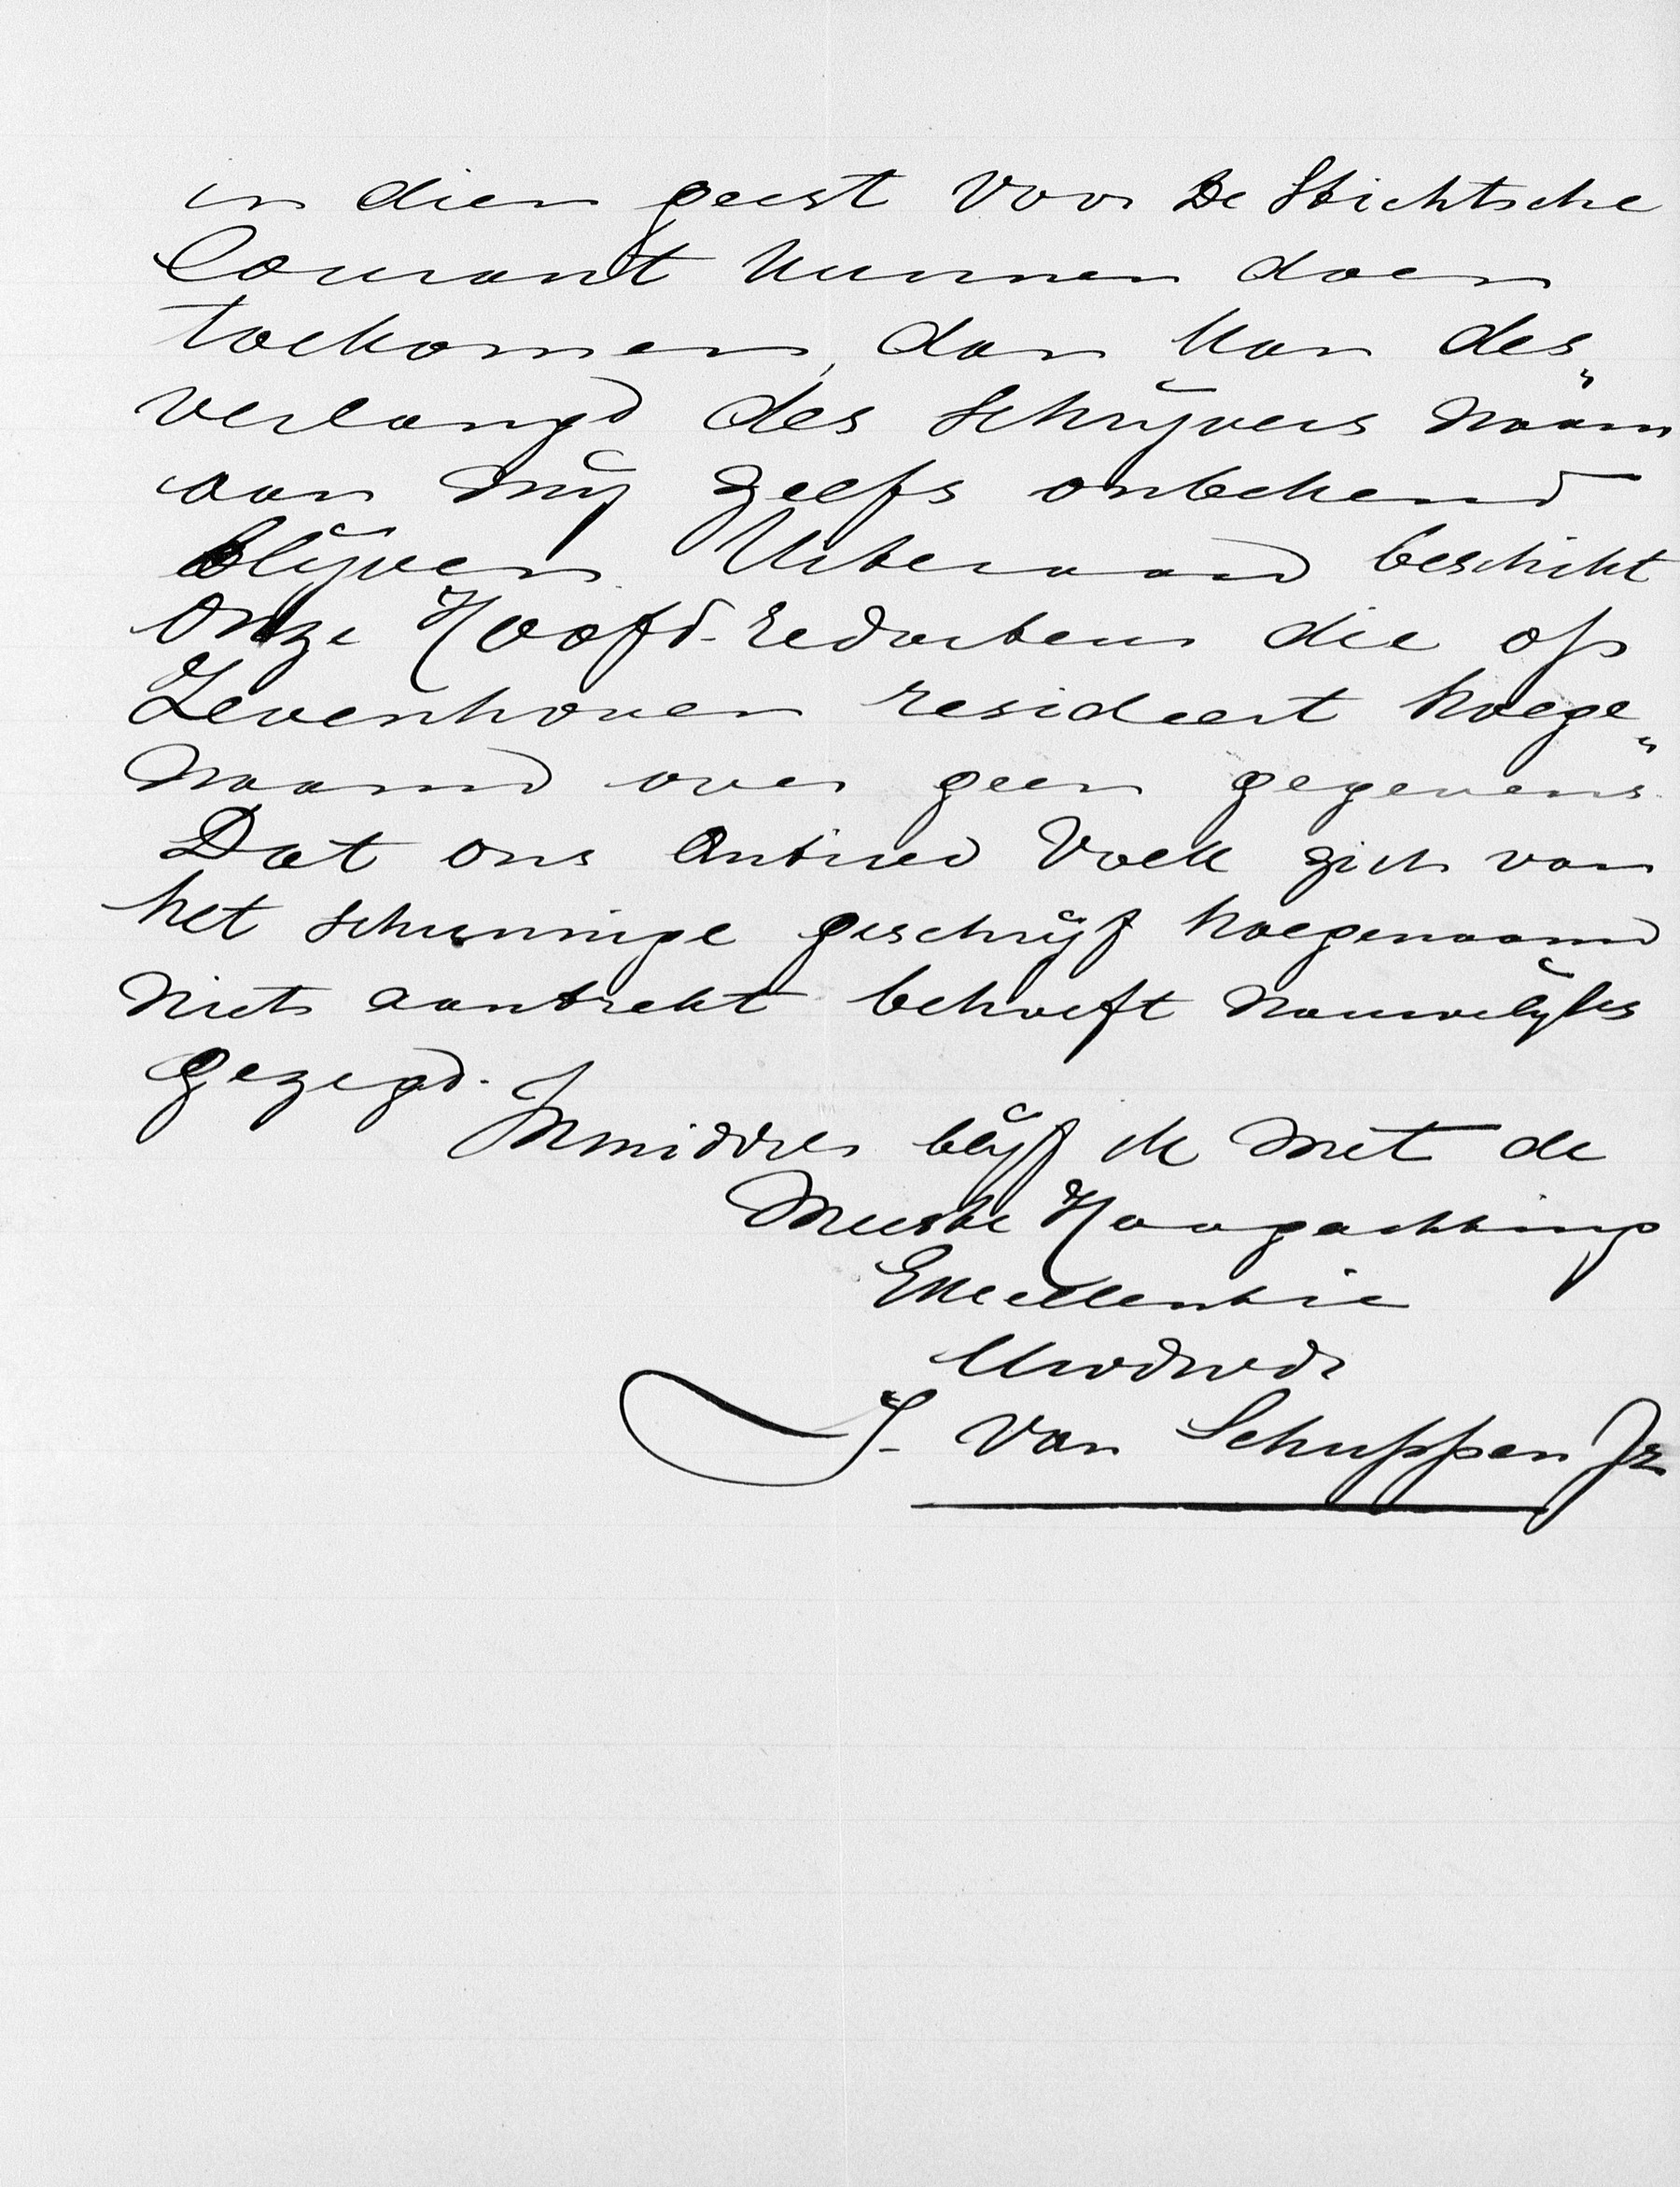 in dien geest voor De Stichtsche
Courant kunnen doen
toekomen, dan kan des„
verlangd des Schrijvers naam
aan mij zelfs onbekend
blijven. Uiteraard beschikt
onze Hoofd-redacteur die op
Zevenhoven resideert hoege„
naamd over geen gegevens.
Dat ons Antirev Volk zich van
het schunnige geschrijf hoegenaamd
niets aantrekt behoeft nauwelijks
gezegd.
Inmiddels blijf ik met de
Meeste Hoogachting
Excellentie
Uwdwdr
J. van Schuppen Jr